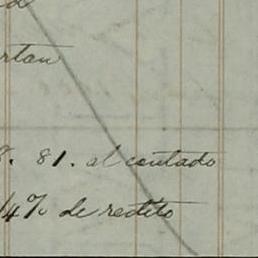 rtan
8. 81. al contado
1/4% de redito